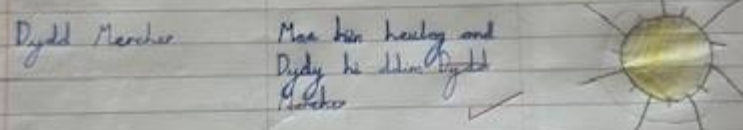 Dydd Mercher
Mae hi'n heulog ond
Dydy hi ddim Dydd
Mercher